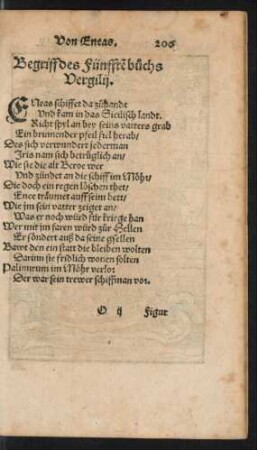 Von Eneas. 206
Begriff des Fünfftē bůchs
Vergilij.
ENeas schiffet da zůhandt
Vnd kam in das Sicilisch landt.
Richt spyl an bey seins vatters grab
Ein brunnender pfeil fiel herab/
Des sich verwundert jederman
Iris nam sich betrüglich an/
Wie sie die alt Beroe wer
Vnd zündet an die schiff im Möhr/
Die doch ein regen löschen thet/
Enee träumet auff seim bett/
Wie jm sein vatter zeiget an/
Was er noch würd für kriege han
Wer mit jm faren würd zůr Hellen
Er söndert auß da seine gsellen
Bawt den ein statt die bleiben wolten
Darinn sie fridlich wonen solten
Palinurum im Möhr verlor
Der war sein trewer schiffman vor.
O ij Figur